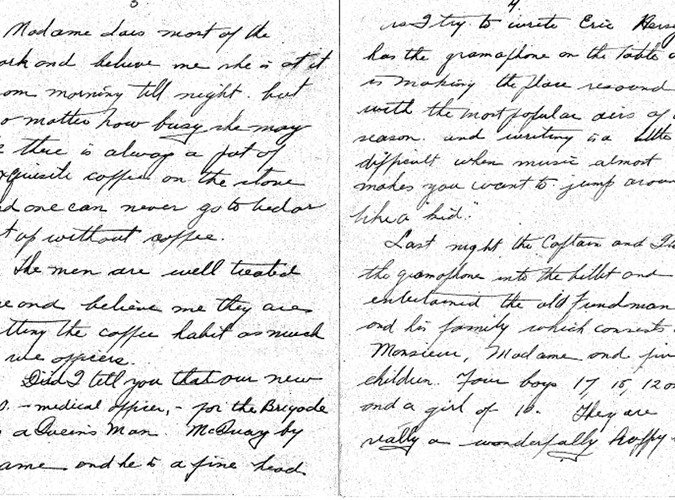 3
Madame does most of the
ork and believe me she is at it
om morning till night. but
o matter how busy she may
there is always a pot of
xquisite coffee on the stove
nd one can never go to bed or
t up without coffee.
The men are well treated
e and believe me they are
tting the coffee habit as much
we officers.
Did I tell you that our new
O. - medical officer, - for the Brigade
a Queens Man. McQuay by
ame and he is a fine head
4.
as I try to write Eric
has the gramophone on the table
is making the place resound
with the most popular airs of
season. and writing is a little
difficult when music almost
makes you want to jump aroun
like a "kid."
Last night the Captain and I
the gramophone into the billet and
entertained the old Frenchman
and his family which consists
Monsieur, Madame and five
children. Four boys 17, 15, 12
and a girl of 10. They are
really a wonderfully happy